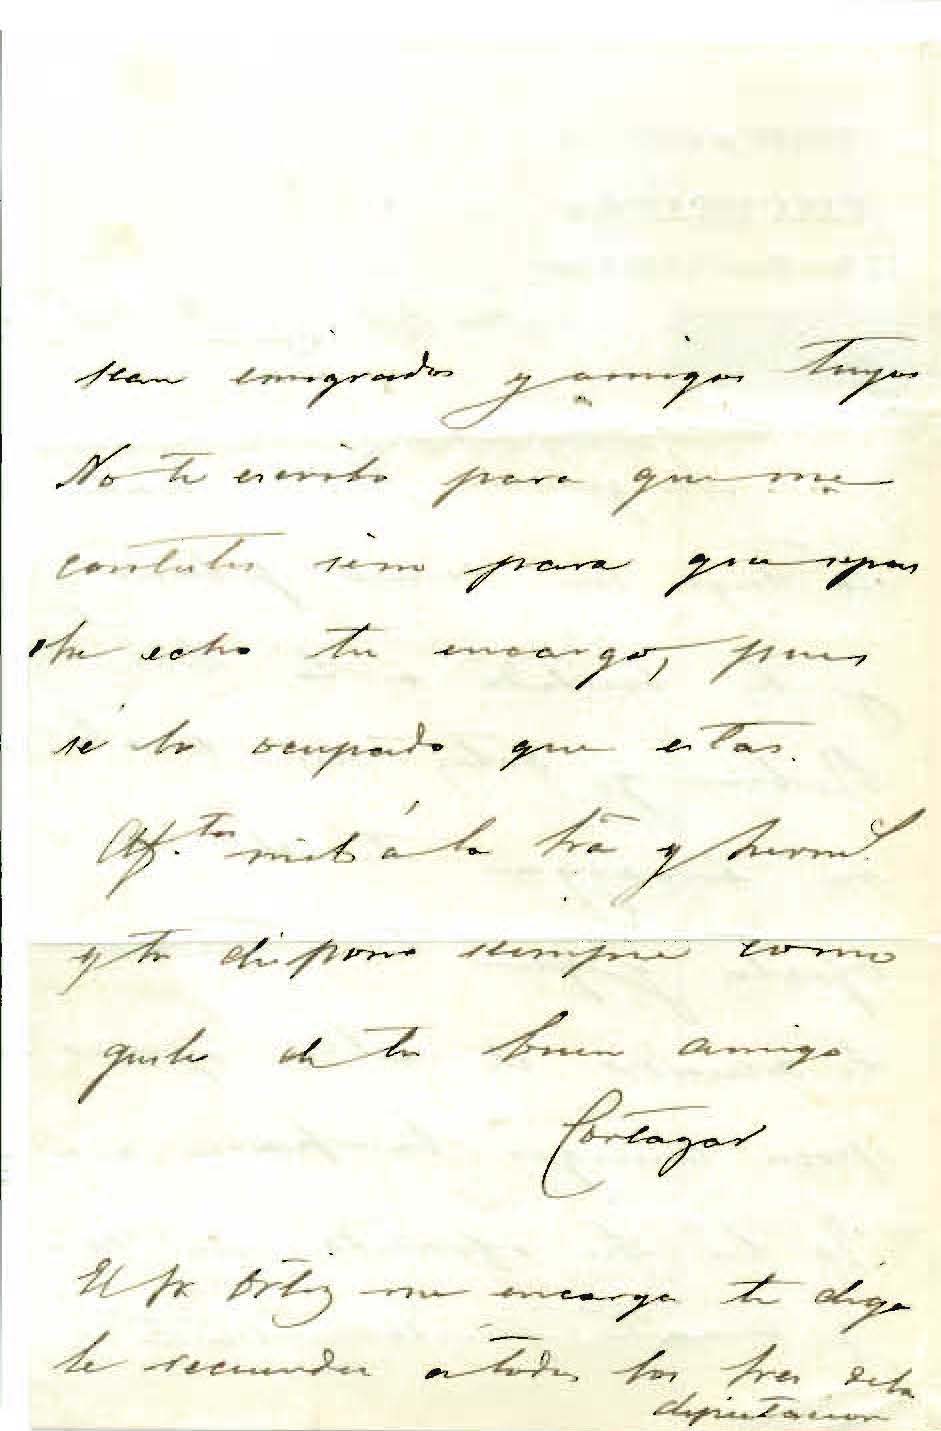 sean emigrados y amigos tuyos
No te escribo para que me
contestes sino para que sepas
he echo tu encargo, pues
sé lo ocupado que estas.
Af.tos mios á la Sra y herm.
y tu dispone siempre como
guste de tu buen amigo
Cortazar
El Sr Ortiz me encarga te diga
le recuerdes a todos los Sres de la
diputacion